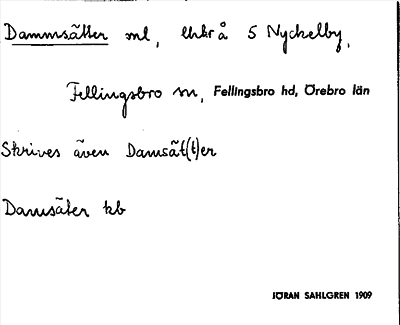 Dammsätter ml, Uhkr å 5 Nyckelby,
Fellingsbro sn, Fellingsbro hd, Örebro län
Skrives även Damsät(t)er
Damsäter kb
JÖRAN SAHLGREN 1909